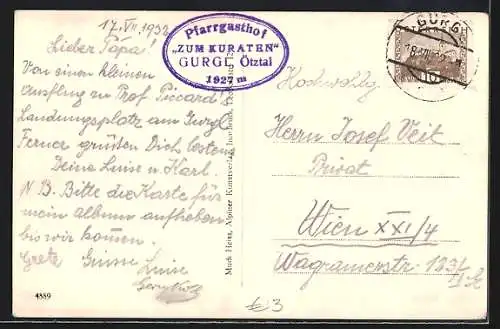 17. VII 1932
Lieber Papa!
Von einem kleinen
Ausflug zu Prof. Piccard's
Landungsplatz am Gurgl
Ferner grüßen Dich bestens
Deine Luise u Karl.
N.B. Bitte die Karte für
mein Album aufheben
bis wir kommen.
Grete Luise
4889
Pfarrgasthof
„ZUM KURATEN"
GURGL Ötztal
1927 m
Much Heiss, Alpiner Kunstverlag, Innsbruck
GURGL
10
Herrn Josef Veit
Privat
Wien XXI/4
Wagramerstr. 133/
€3